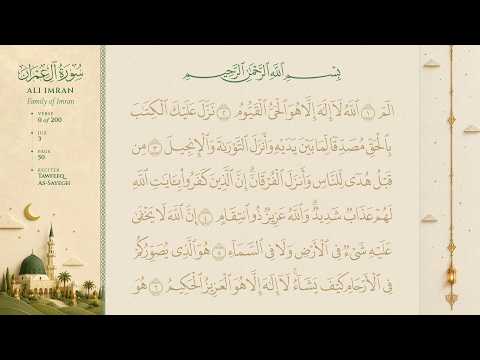 سُورَةُ آلِ عِمْرَانَ
ALI IMRAN
Family of Imran
VERSE
0 of 200
JUZ
3
PAGE
50
RECITER
TAWFEEQ
AS-SAYEGH
بِسْمِ ٱللَّهِ ٱلرَّحْمَٰنِ ٱلرَّحِيمِ
الٓمٓ ١ ٱللَّهُ لَآ إِلَٰهَ إِلَّا هُوَ ٱلْحَىُّ ٱلْقَيُّومُ ٢ نَزَّلَ عَلَيْكَ ٱلْكِتَٰبَ
بِٱلْحَقِّ مُصَدِّقًا لِّمَا بَيْنَ يَدَيْهِ وَأَنزَلَ ٱلتَّوْرَىٰةَ وَٱلْإِنجِيلَ ٣ مِن
قَبْلُ هُدًى لِّلنَّاسِ وَأَنزَلَ ٱلْفُرْقَانَ ۗ إِنَّ ٱلَّذِينَ كَفَرُوا۟ بِـَٔايَٰتِ ٱللَّهِ
لَهُمْ عَذَابٌ شَدِيدٌ ۗ وَٱللَّهُ عَزِيزٌ ذُو ٱنتِقَامٍ ٤ إِنَّ ٱللَّهَ لَا يَخْفَىٰ
عَلَيْهِ شَىْءٌ فِى ٱلْأَرْضِ وَلَا فِى ٱلسَّمَآءِ ٥ هُوَ ٱلَّذِى يُصَوِّرُكُمْ
فِى ٱلْأَرْحَامِ كَيْفَ يَشَآءُ ۚ لَآ إِلَٰهَ إِلَّا هُوَ ٱلْعَزِيزُ ٱلْحَكِيمُ ٦ هُوَ